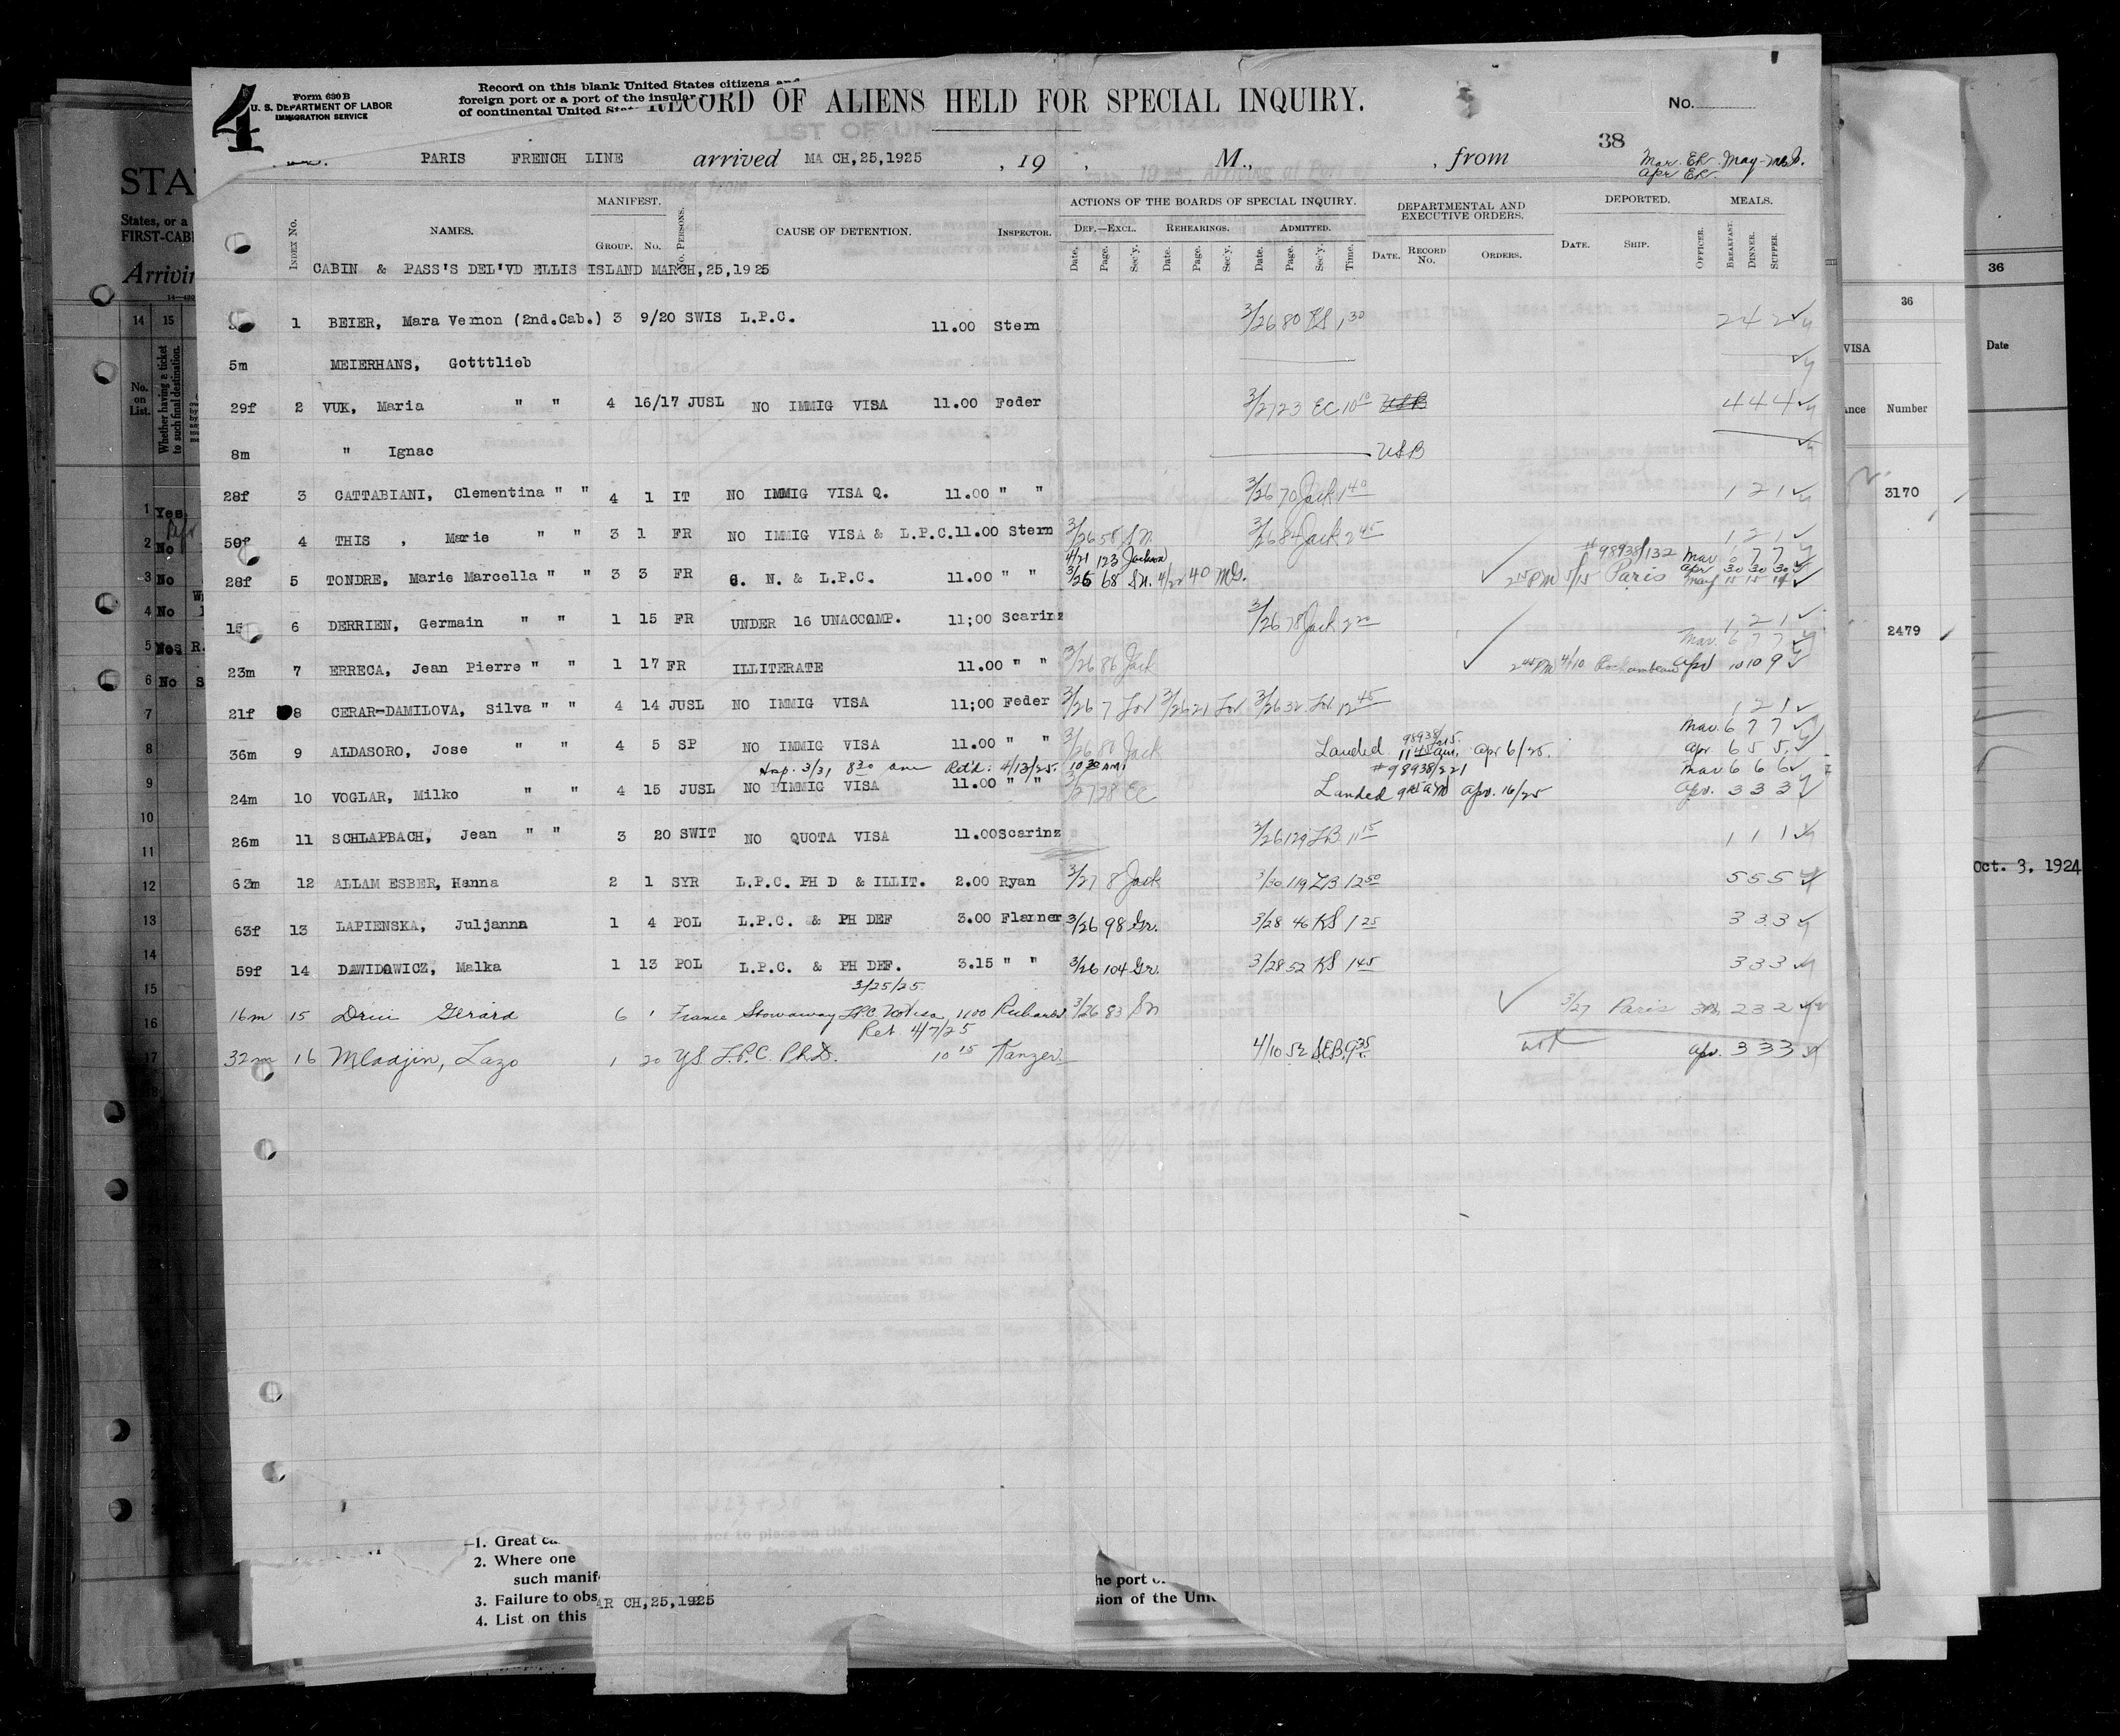 4
Form 630 B
U. S. DEPARTMENT OF LABOR
IMMIGRATION SERVICE
Record on this blank United States citizens and
foreign port or a port of the insular
of continental United
RECORD OF ALIENS HELD FOR SPECIAL INQUIRY.
No.
38
PARIS FRENCH LINE arrived MA CH,25,1925 , 19 , M., , from
Mar. ER. May-
Apr ER.
INDEX No. NAMES. MANIFEST. GROUP. No. No. PERSONS. CAUSE OF DETENTION. INSPECTOR.
ACTIONS OF THE BOARDS OF SPECIAL INQUIRY. DEF.—EXCL. REHEARINGS. ADMITTED.
Date. Page. Sec'y. Date. Page. Sec'y. Date. Page. Sec'y. Time.
DEPARTMENTAL AND EXECUTIVE ORDERS. DATE. RECORD No. ORDERS.
DEPORTED. DATE. SHIP. OFFICER. MEALS. BREAKFAST. DINNER. SUPPER.
CABIN & PASS'S DEL'VD ELLIS ISLAND MARCH,25,1925
1 BEIER, Mara Vernon (2nd.Cab.) 3 9/20 SWIS L.P.C. 11.00 Stern 3/26 80 1 30 2 4 2
5m MEIERHANS, Gotttlieb
29f 2 VUK, Maria " " 4 16/17 JUSL NO IMMIG VISA 11.00 Feder 3/27 23 EC 10 10 USB 4 4 4
8m " Ignac USB
28f 3 CATTABIANI, Clementina " " 4 1 IT NO IMMIG VISA Q. 11.00 " " 3/26 70 Jack 1 40 1 2 1
50f 4 THIS , Marie " " 3 1 FR NO IMMIG VISA & L.P.C. 11.00 Stern 3/26 58 Sn. 3/26 84 Jack 2 45 1 2 1
4/21 123 Jackson #98938/132 Mar 6 7 7
28f 5 TONDRE, Marie Marcella " " 3 3 FR C. N. & L.P.C. 11.00 " " 3/26 68 Sn. 4/22 40 MG. 2 15 PM 5/15 Paris Apr 30 30 30
May 15 15 14
15 6 DERRIEN, Germain " " 1 15 FR UNDER 16 UNACCOMP. 11;00 Scarinz 3/26 78 Jack 2 20 1 2 1
Mar. 6 7 7
23m 7 ERRECA, Jean Pierre " " 1 17 FR ILLITERATE 11.00 " " 3/26 86 Jack 2 45 PM 4/10 Rochambeau Apr 10 10 9
21f 8 CERAR-DAMILOVA, Silva " " 4 14 JUSL NO IMMIG VISA 11;00 Feder 3/26 7 3/26 21 3/26 32 12 45 1 2 1
98938/215. Mar. 6 7 7
36m 9 ALDASORO, Jose " " 4 5 SP NO IMMIG VISA 11.00 " " 3/26 80 Jack Landed 11 45 am. Apr 6/25. Apr 6 5 5
Hosp. 3/31 8 30 am Ret'd: 4/13/25. 10 30 AM. #98938/221 Mar 6 6 6
24m 10 VOGLAR, Milko " " 4 15 JUSL NO IMMIG VISA 11.00 " " 3/27 28 EC Landed 9 45 AM Apr. 16/25 Apr. 3 3 3
26m 11 SCHLAPBACH, Jean " " 3 20 SWIT NO QUOTA VISA 11.00 Scarinz 3/26 129 LB 11 15 1 1 1
63m 12 ALLAM ESBER, Hanna 2 1 SYR L.P.C. PH D & ILLIT. 2.00 Ryan 3/27 8 Jack 3/30 119 LB 12 50 5 5 5
63f 13 LAPIENSKA, Juljanna 1 4 POL L.P.C. & PH DEF 3.00 Flarner 3/26 98 Gr. 3/28 46 KS 1 25 3 3 3
59f 14 DAWIDOWICZ, Malka 1 13 POL L.P.C. & PH DEF. 3.15 " " 3/26 104 Gr. 3/28 52 KS 1 45 3 3 3
3/25/25
16m 15 Gerard 6 1 France Stowaway LPC 11 00 3/26 83 Sn 3/27 Paris 2 3 2
Ret 4/7/25
32m 16 Mladjin, Lazo 1 20 YS L.P.C. Ph.D. 10 15 4/10 52 9 35 Apr. 3 3 3
1. Great
2. Where one
such manif
3. Failure to obs
4. List on this
AR CH,25,1925
he port
sion of the Uni
STA
States, or a
FIRST-CAB
Arrivin
14 15
No. on List.
Whether having a ticket to such final destination.
1 Yes
2 No
3 No
4 No
5 No
6 No
7
8
9
10
11
12
13
14
15
16
17
36
VISA
Number
3170
2479
36
Date
Oct. 3, 1924